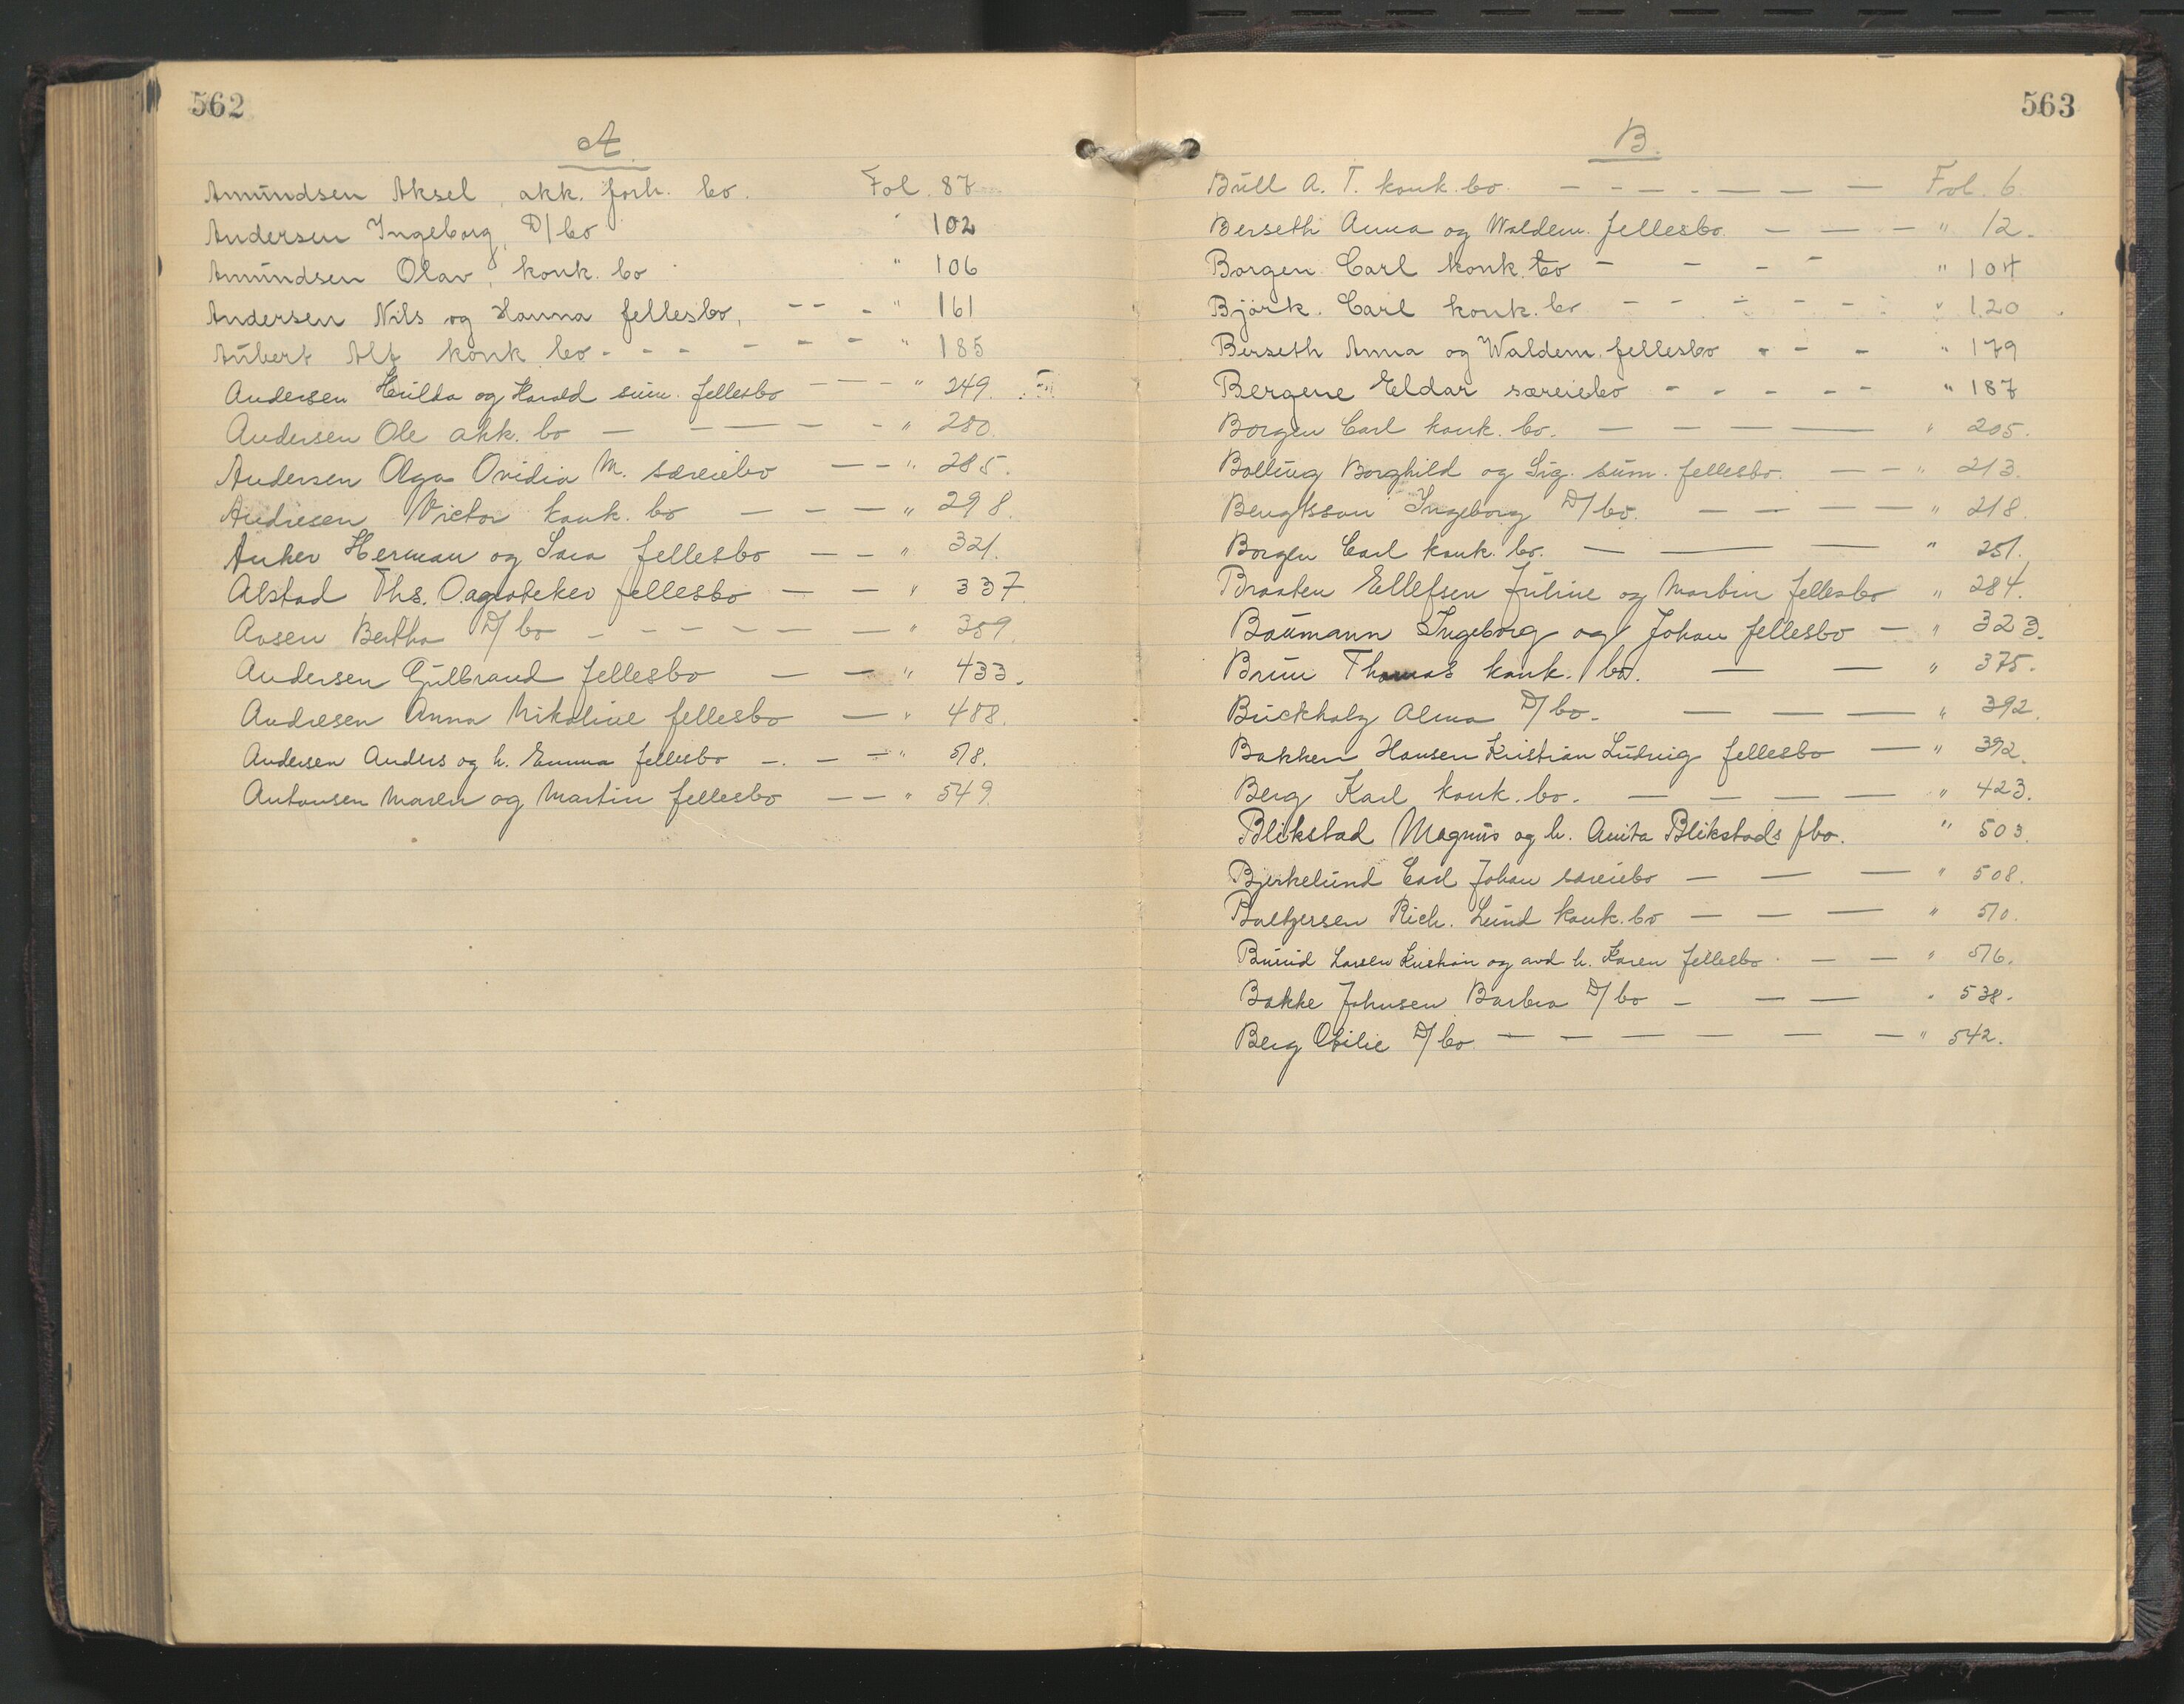 562
A.
Amundsen Aksel, akk. forh. bo. Fol. 87
Andersen Ingeborg, D/bo " 102
Amundsen Olav, konk. bo " 106
Andersen Nils og Hanna fellesbo, - - - " 161
Aubert Alf konk bo - - - - - - - " 185
Andersen Hulda og Harald sum. fellesbo - - - " 249.
Andersen Ole akk. bo - - - - - " 280.
Andersen Olga Ovidia M. særeiebo - - " 285.
Andresen Victor konk. bo - - - " 298.
Anker Herman og Sara fellesbo - - " 321.
Alstad Ths. O. apoteker fellesbo - - " 337
Aasen Bertha D/bo - - - - - - " 359.
Andersen Gulbrand fellesbo - - " 433.
Andresen Anna Nikoline fellesbo - " 488.
Andersen Anders og h. Emma fellesbo - . - - " 518.
Antonsen Maren og Martin fellesbo - - " 549.
563
B.
Bull A. T. konk. bo. - - - - - - - Fol. 6.
Berseth Anna og Waldem. fellesbo. - - - " 12.
Borgen Carl konk. bo - - - - " 104
Björk. Carl konk. bo - - - - - " 120
Berseth Anna og Waldem. fellesbo - - - " 179
Bergene Eldar særeiebo - - - - - " 187
Borgen Carl konk. bo. - - - - " 205.
Bolling Borghild og Sig. sum. fellesbo. - - " 213.
Bengtsson Ingeborg D/bo. - - - - " 218.
Borgen Carl konk. bo. - - - " 251.
Braaten Ellefsen Juline og Martin fellesbo " 284.
Baumann Ingeborg og Johan fellesbo - " 323.
Bruu Thomas konk. bo. - - " 375.
Buckholz Alma D/bo. - - - " 392.
Bakken Hansen Kristian Ludvig fellesbo - " 392.
Berg Karl konk. bo. - - - - " 423.
Blikstad Magnus og h. Anita Blikstads fbo. " 503.
Bjerkelund Carl Johan særeiebo - - - " 508.
Baltzersen Rich. Lund konk. bo - - - " 510.
Larsen Kristian og avd. h. Karen fellesbo. - - " 516.
Bakke Johnsen Barbra D/bo - - - " 538.
Berg Otilie D/bo - - - - - - " 542.